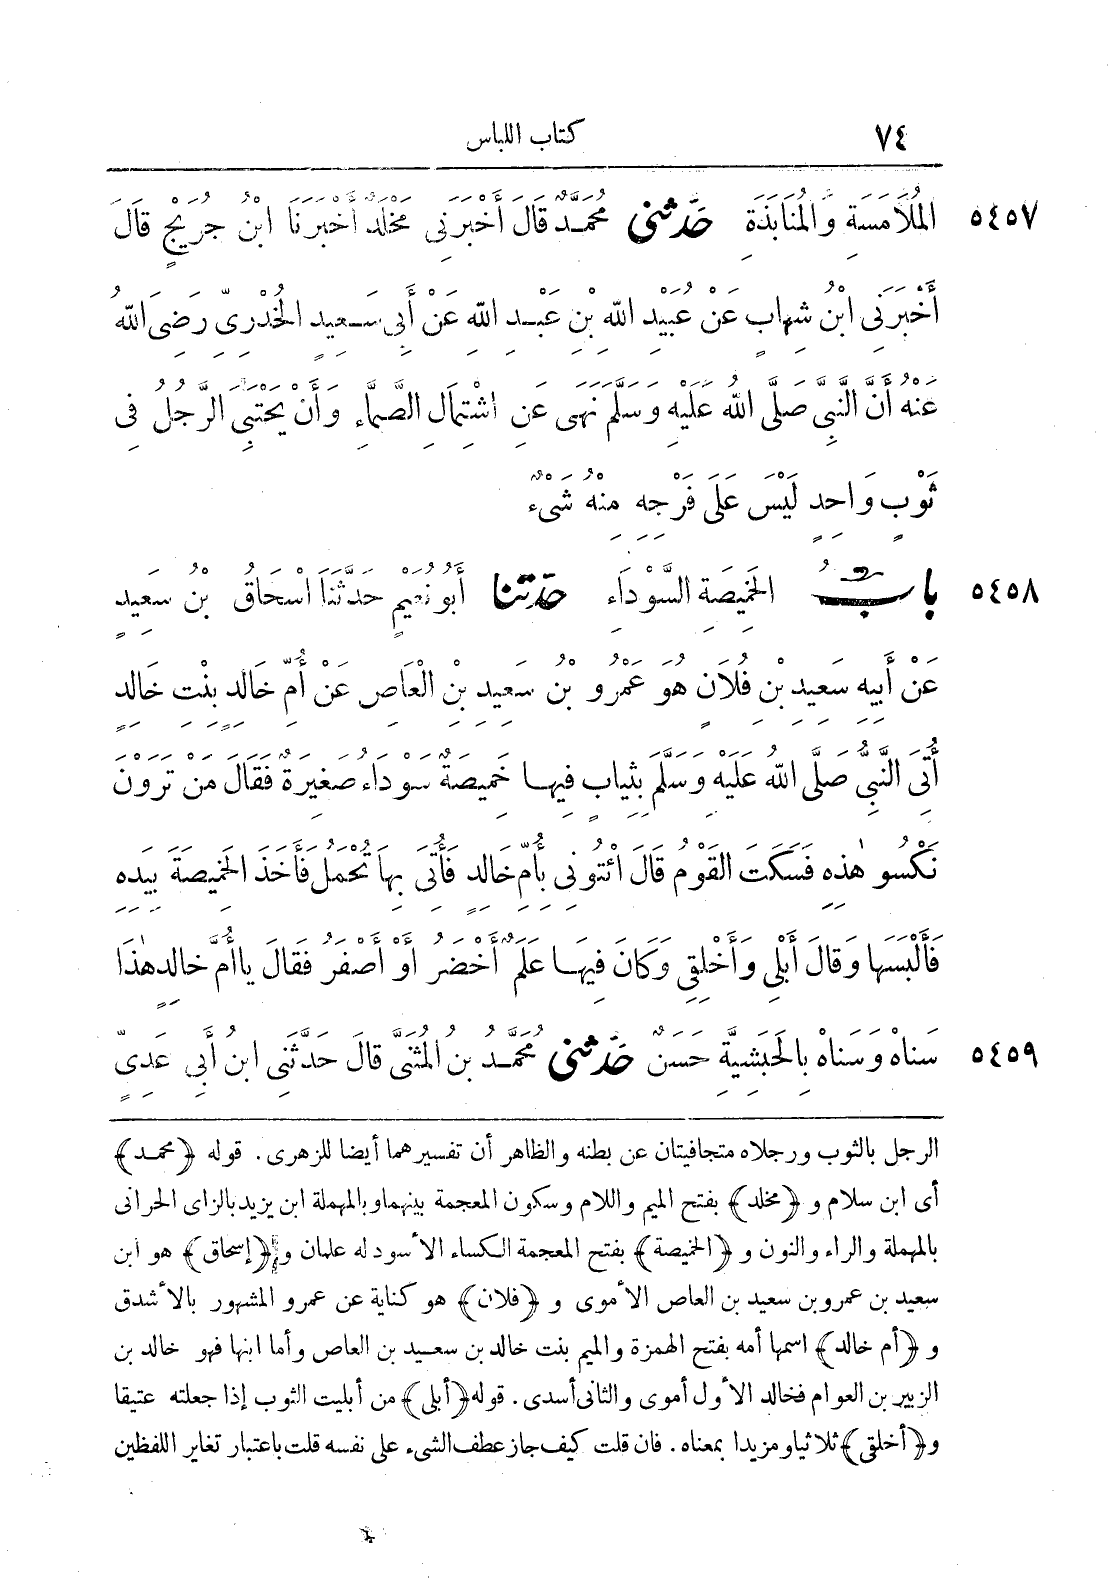 ٧٤ كتاب اللباس
٥٤٥٧ الْمُلَامَسَةِ وَالْمُنَابَذَةِ حَدَّثَنِي مُحَمَّدٌ قَالَ أَخْبَرَنِي مَخْلَدٌ أَخْبَرَنَا ابْنُ جُرَيْجٍ قَالَ
أَخْبَرَنِي ابْنُ شِهَابٍ عَنْ عُبَيْدِ اللهِ بْنِ عَبْدِ اللهِ عَنْ أَبِي سَعِيدٍ الْخُدْرِيِّ رَضِيَ اللهُ
عَنْهُ أَنَّ النَّبِيَّ صَلَّى اللهُ عَلَيْهِ وَسَلَّمَ نَهَى عَنِ اشْتِمَالِ الصَّمَّاءِ وَأَنْ يَحْتَبِيَ الرَّجُلُ فِي
ثَوْبٍ وَاحِدٍ لَيْسَ عَلَى فَرْجِهِ مِنْهُ شَيْءٌ
٥٤٥٨ بَابُ الْخَمِيصَةِ السَّوْدَاءِ حَدَّثَنَا أَبُو نُعَيْمٍ حَدَّثَنَا اسْحَاقُ بْنُ سَعِيدٍ
عَنْ أَبِيهِ سَعِيدِ بْنِ فُلَانٍ هُوَ عَمْرُو بْنُ سَعِيدِ بْنِ الْعَاصِ عَنْ أُمِّ خَالِدٍ بِنْتِ خَالِدٍ
أُتِيَ النَّبِيُّ صَلَّى اللهُ عَلَيْهِ وَسَلَّمَ بِثِيَابٍ فِيهَا خَمِيصَةٌ سَوْدَاءُ صَغِيرَةٌ فَقَالَ مَنْ تَرَوْنَ
نَكْسُو هٰذِهِ فَسَكَتَ الْقَوْمُ قَالَ ائْتُونِي بِأُمِّ خَالِدٍ فَأُتِيَ بِهَا تُحْمَلُ فَأَخَذَ الْخَمِيصَةَ بِيَدِهِ
فَأَلْبَسَهَا وَقَالَ أَبْلِي وَأَخْلِقِي وَكَانَ فِيهَا عَلَمٌ أَخْضَرُ أَوْ أَصْفَرُ فَقَالَ يَا أُمَّ خَالِدٍ هٰذَا
٥٤٥٩ سَنَاهْ وَسَنَاهْ بِالْحَبَشِيَّةِ حَسَنٌ حَدَّثَنِي مُحَمَّدُ بْنُ الْمُثَنَّى قَالَ حَدَّثَنِي ابْنُ أَبِي عَدِيٍّ
الرجل بالثوب ورجلاه متجافيتان عن بطنه والظاهر أن تفسيرهما أيضا للزهرى. قوله ﴿محمد﴾
أى ابن سلام و ﴿مخلد﴾ بفتح الميم واللام وسكون المعجمة بينهما وبالمهملة ابن يزيد بالزاى الحرانى
بالمهملة والراء والنون و ﴿الخميصة﴾ بفتح المعجمة الكساء الأسود له علمان و ﴿إسحاق﴾ هو ابن
سعيد بن عمرو بن سعيد بن العاص الأموى و ﴿فلان﴾ هو كناية عن عمرو المشهور بالأشدق
و ﴿أم خالد﴾ اسمها أمه بفتح الهمزة والميم بنت خالد بن سعيد بن العاص وأما ابنها فهو خالد بن
الزبير بن العوام فخالد الأول أموى والثانى أسدى. قوله ﴿أبلى﴾ من أبليت الثوب إذا جعلته عتيقا
و ﴿أخلقى﴾ ثلاثيا ومزيدا بمعناه. فان قلت كيف جاز عطف الشىء على نفسه قلت باعتبار تغاير اللفظين